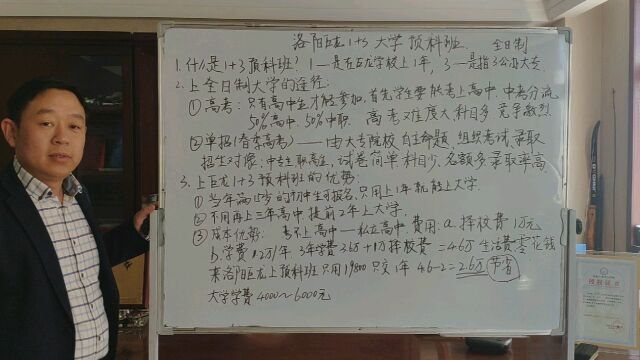 洛阳巨龙1+3大学预科班. 全日制
1.什么是1+3预科班? 1—是在巨龙学校上1年, 3—是指3公办大专.
2.上全日制大学的途径:
①高考:只有高中生才能参加.首先学生要能考上高中,中考分流
50%高中.50%中职. 高考又难度大科目多 竞争激烈.
②单招(春季高考)——由大专院校自主命题,组织考试,录取
招生对像:中专生职高生,试卷简单科目少.名额多录取率高.
3.上巨龙1+3预科班的优势:
①当年满 岁的初中生可报名.只用上1年就能上大学.
②不用再上三年高中提前2年上大学.
③成本优势: 考不上高中—私立高中.费用:a.择校费1万元
b.学费1.2万/年.3年学费3.6万+1万择校费=4.6万 生活费零花钱
来洛阳巨龙上预科班只用19800只交1年 4.6-2=2.6万 节省
大学学费4000~6000元